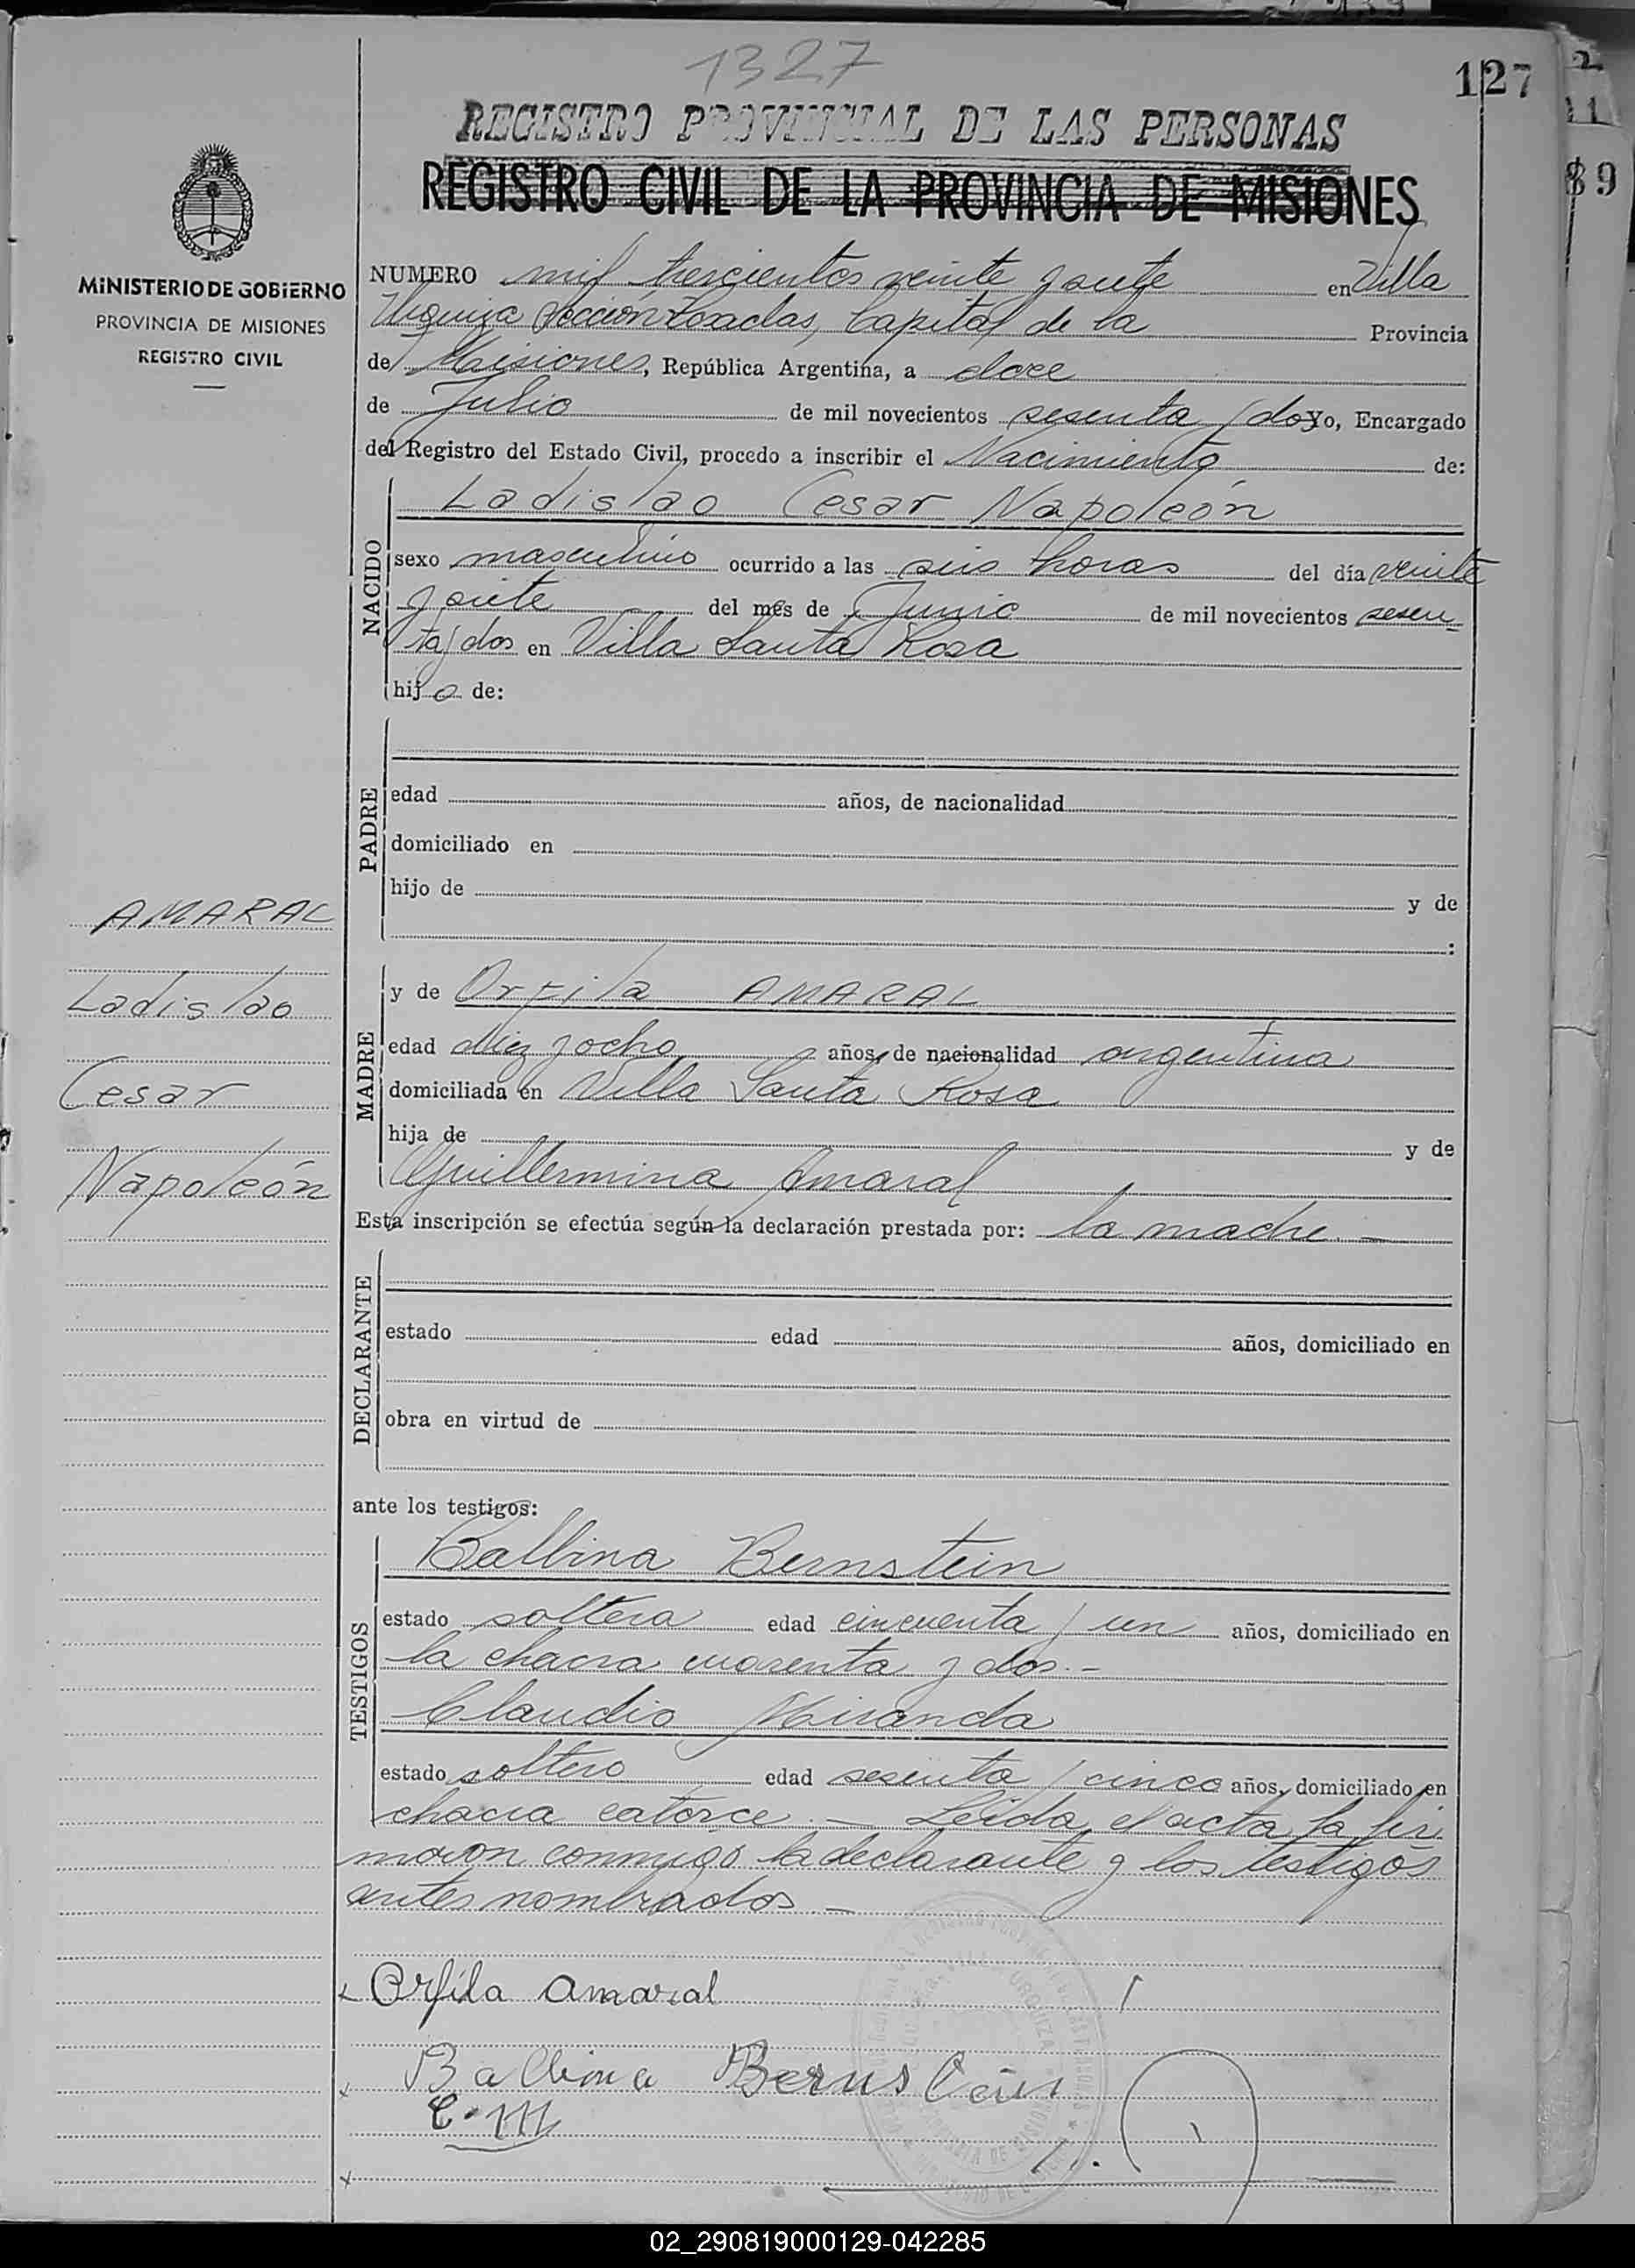 1327
127
REGISTRO PROVINCIAL DE LAS PERSONAS
REGISTRO CIVIL DE LA PROVINCIA DE MISIONES
89
MINISTERIO DE GOBIERNO
PROVINCIA DE MISIONES
REGISTRO CIVIL
NUMERO mil trescientos veinte y siete en Villa
Urquiza Sección Posadas, Capital de la Provincia
de Misiones, República Argentina, a doce
de Julio de mil novecientos sesenta y dos Yo, Encargado
del Registro del Estado Civil, procedo a inscribir el Nacimiento de:
NACIDO
Ladislao Cesar Napoleón
sexo masculino ocurrido a las seis horas del día veinte
y siete del mes de Junio de mil novecientos sesen-
ta y dos en Villa Santa Rosa
hijo de:
PADRE
edad años, de nacionalidad
domiciliado en
hijo de y de
:
AMARAL
Ladislao
Cesar
Napoleón
MADRE
y de Orfila AMARAL
edad diez y ocho años, de nacionalidad argentina
domiciliada en Villa Santa Rosa
hija de y de
Guillermina Amaral
Esta inscripción se efectúa según la declaración prestada por: la madre. -
DECLARANTE
estado edad años, domiciliado en
obra en virtud de
ante los testigos:
TESTIGOS
Balbina Bernstein
estado soltera edad cincuenta y un años, domiciliado en
la chacra cuarenta y dos.-
Claudio Miranda
estado soltero edad sesenta y cinco años, domiciliado en
chacra catorce. - Leída el acta la fir
maron conmigo la declarante y los testigos
antes nombrados -
Orfila Amaral
Balbina Bernstein
C.M
02_290819000129-042285